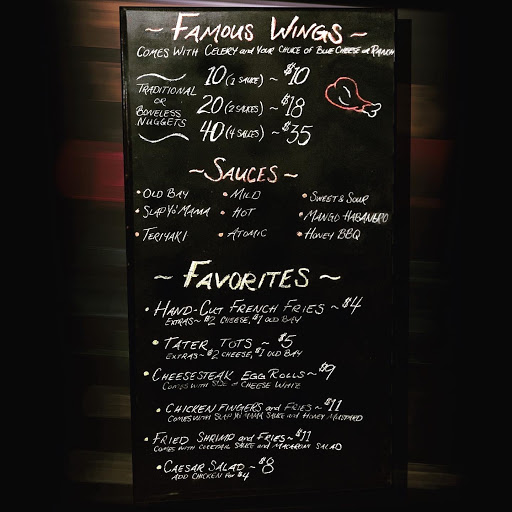 ~ FAMOUS WINGS ~
COMES WITH CELERY and YOUR CHOICE OF BLUE CHEESE or RANCH
TRADITIONAL
OR
BONELESS
NUGGETS
10 (1 SAUCE) ~ $10
20 (2 SAUCES) ~ $18
40 (4 SAUCES) ~ $35
~ SAUCES ~
• OLD BAY • MILD • SWEET & SOUR
• SLAP YO' MAMA • HOT • MANGO HABANERO
• TERIYAKI • ATOMIC • HONEY BBQ
~ FAVORITES ~
• HAND-CUT FRENCH FRIES ~ $4
EXTRAS ~ $2 CHEESE, $1 OLD BAY
• TATER TOTS ~ $5
EXTRAS ~ $2 CHEESE, $1 OLD BAY
• CHEESESTEAK EGG ROLLS ~ $9
COMES WITH SIDE of CHEESE WHIZ
• CHICKEN FINGERS and FRIES ~ $11
COMES WITH SLAP YO' MAMA SAUCE and HONEY MUSTARD
• FRIED SHRIMP and FRIES ~ $11
COMES WITH COCKTAIL SAUCE and MACARONI SALAD
• CAESAR SALAD ~ $8
ADD CHICKEN FOR $4